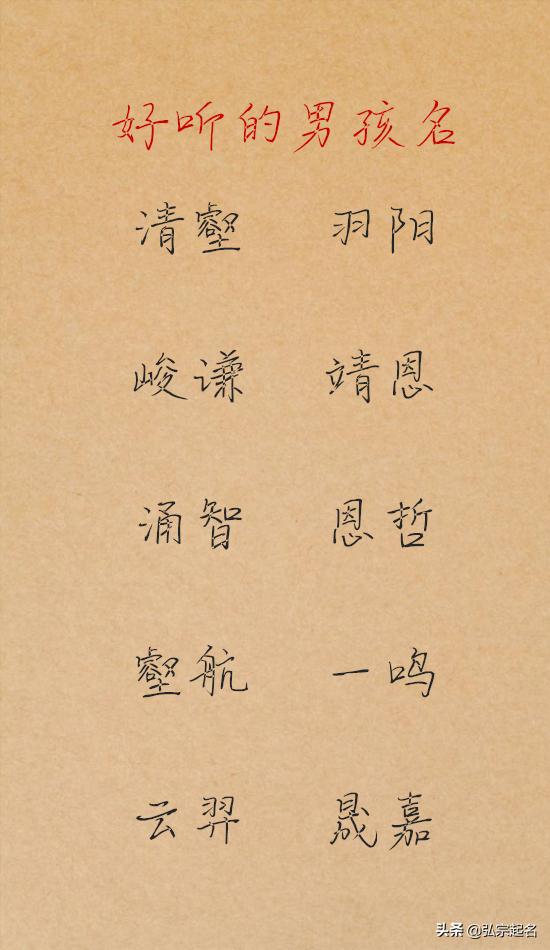 好听的男孩名
清壑 羽阳
峻谦 靖恩
涌智 恩哲
壑航 一鸣
云羿 晟嘉
头条 @弘宗起名